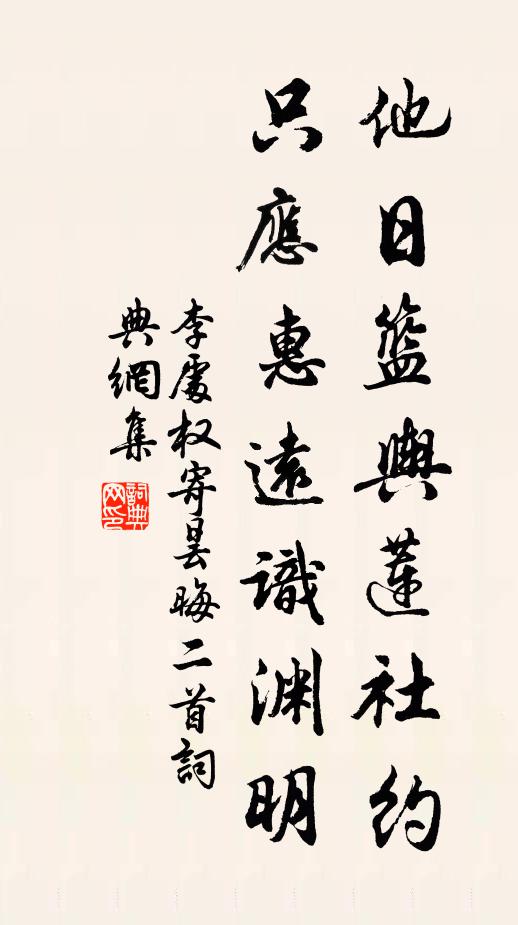 他日籃輿蓮社約
只應惠遠識渊明
李處权寄昙晦二首詞
典網集
詞典
网印